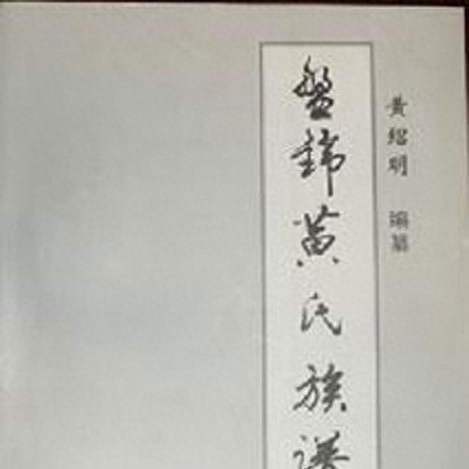 黃紹明 編纂
盤錦黃氏族譜